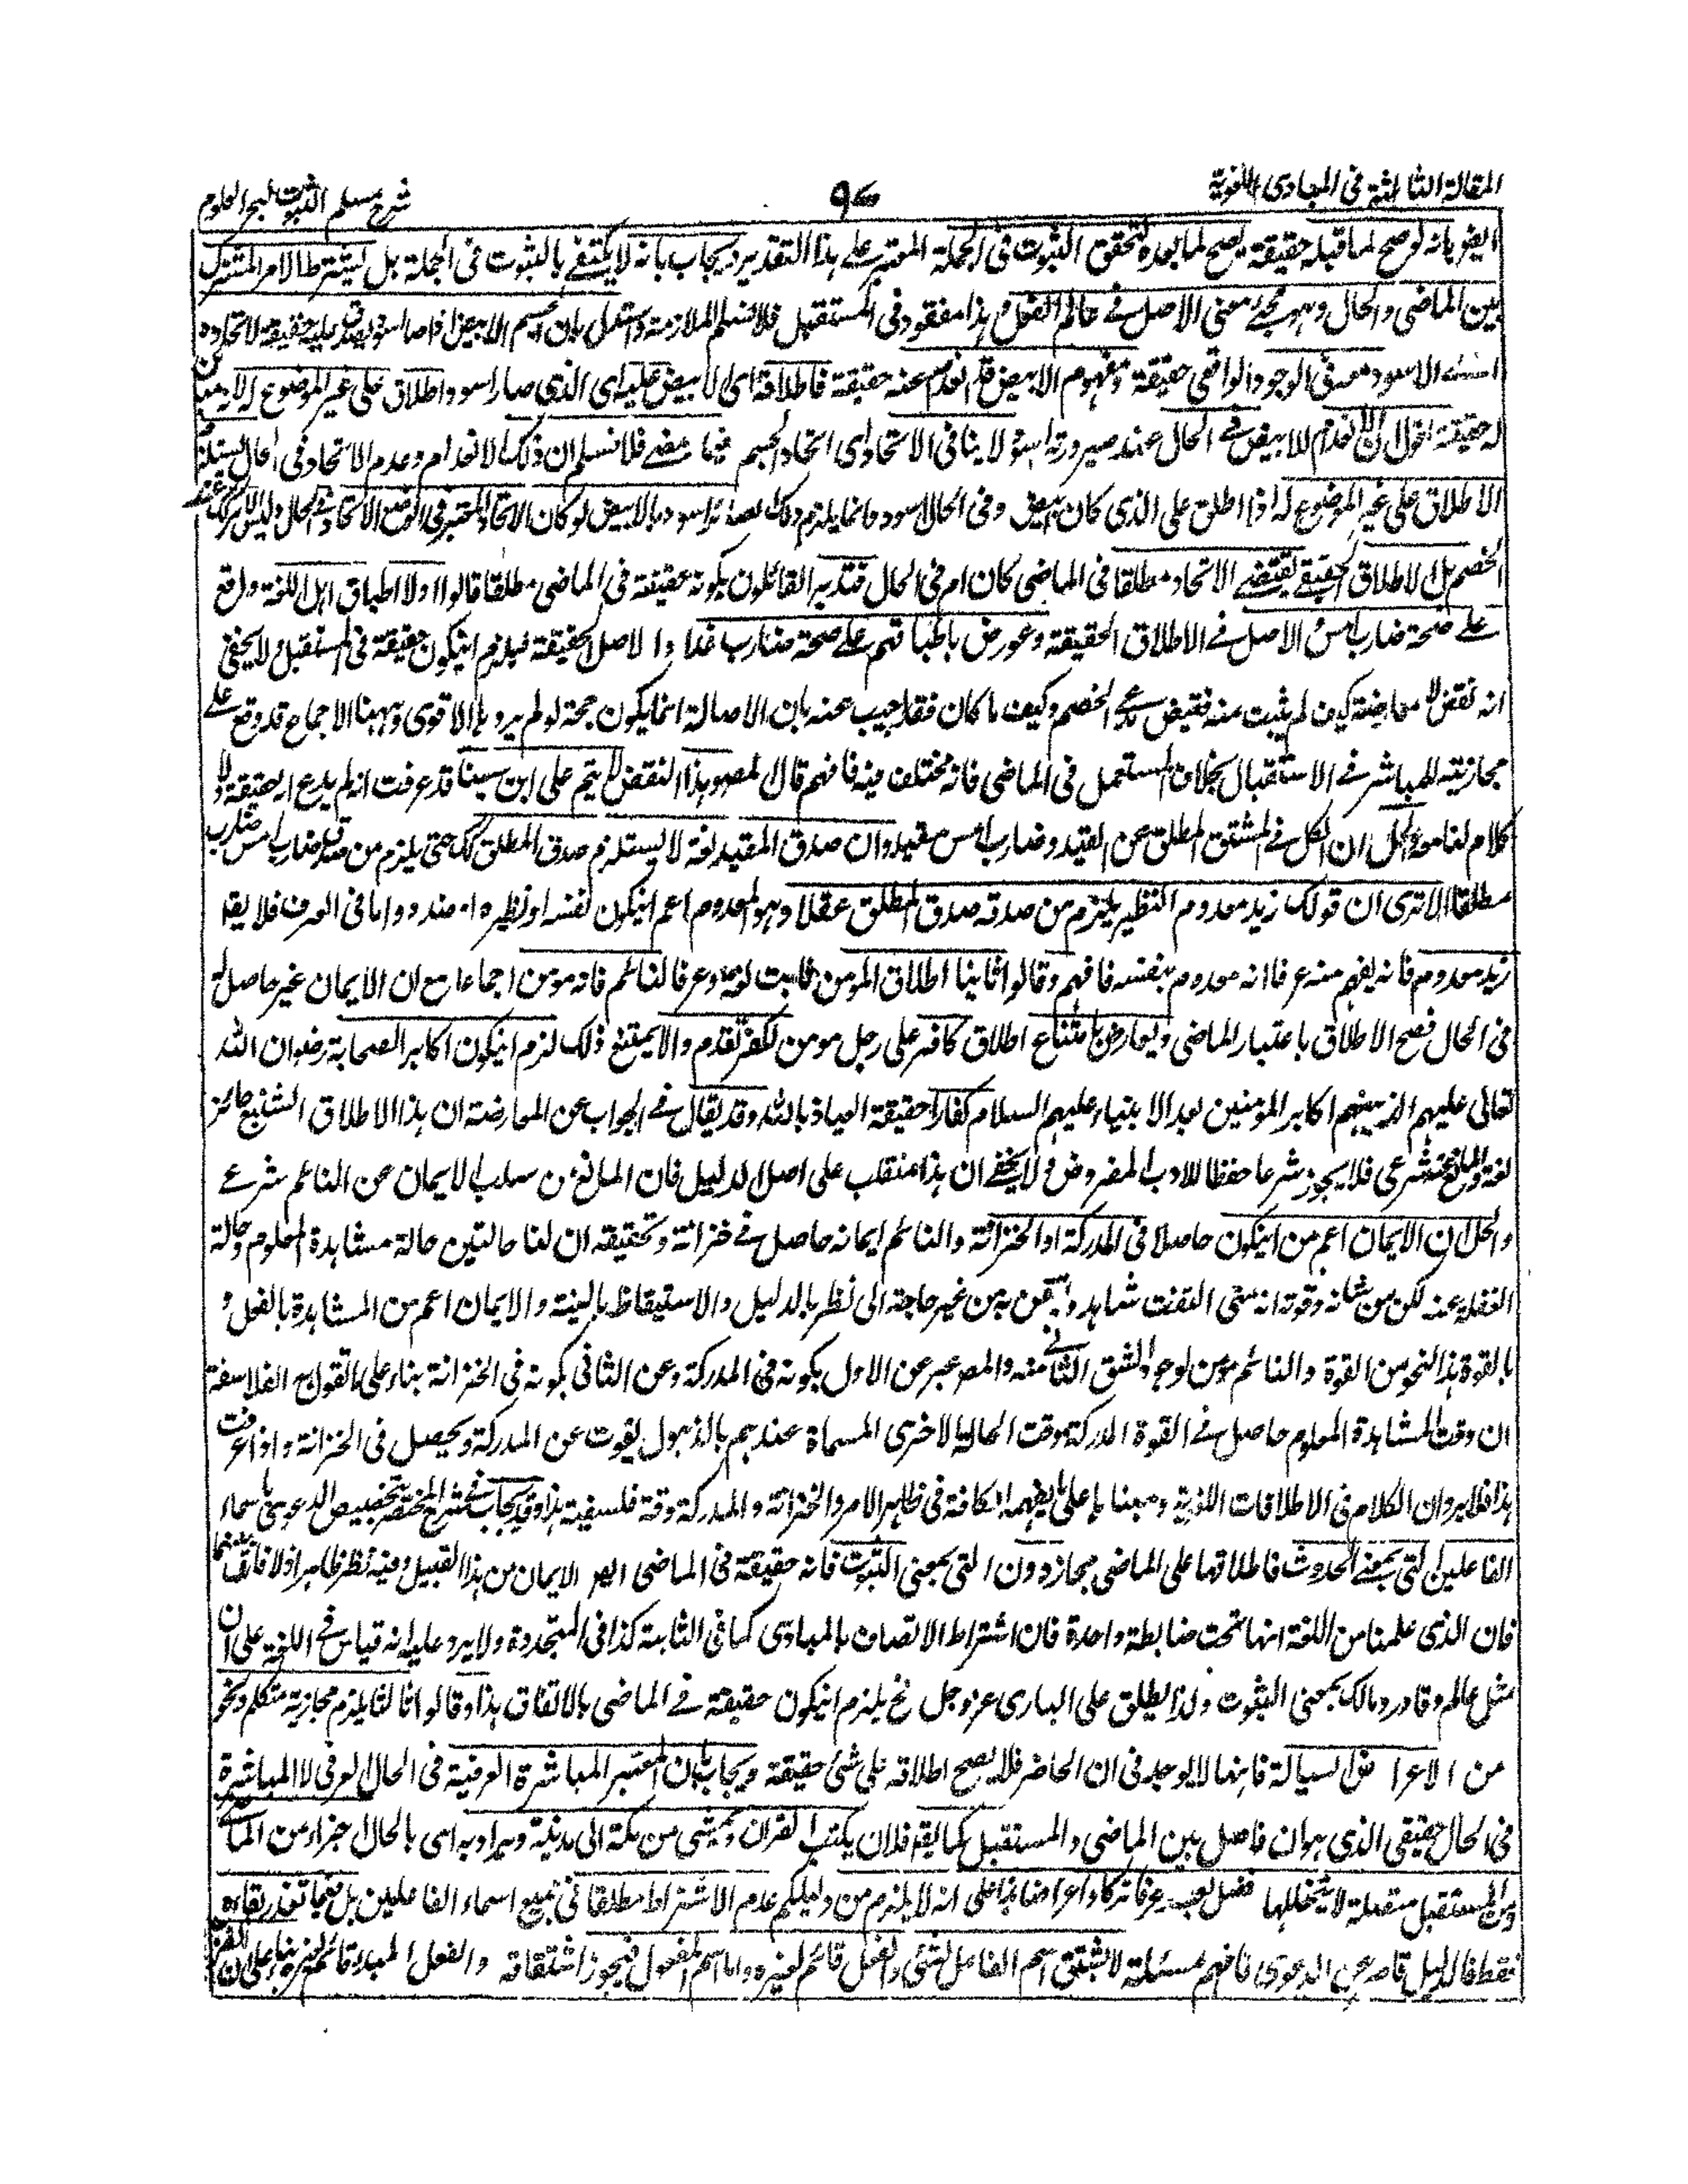 المقالة الثالثة فى المبادى اللغوية
٩٧
شرح مسلم الثبوت لبحر العلوم
ايضا بانه لو صح لما قبله حقيقة يصح لما بعده لتحقق الثبوت فى الجملة المعتبر على هذا التقدير ويجاب بانه لا يكتفى بالثبوت فى الجملة بل يشترط الامر المشترك
بين الماضى والحال وهو مجئ معنى الاصل فى عالم الفعل وهذا مفقود فى المستقبل فلا نسلم الملازمة واستدل بان جسم الابيض اذا صار اسود يصدق عليه حقيقة لاتحاده
الاسود معه فى الوجود الواقعى حقيقة ومفهوم الابيض قد انعدم عنه حقيقة فاطلاقه اى الابيض عليه اى الذى صار اسود اطلاق على غير الموضوع له
له حقيقة اقول ان الانعدام للابيض فى الحال عند صيرورته اسود لا ينافى الاتحاد اى اتحاد الجسم فيما مضى فلا نسلم ان ذلك الانعدام وعدم الاتحاد فى الحال
الاطلاق على غير الموضوع له اذا اطلق على الذى كان ابيض وفى الحال اسود وانما يلزم ذلك لو كان الاتحاد المعتبر فى الوضع الاتحاد فى الحال وليس كذلك عند
الخصم بل الاطلاق الحقيقى يقتضى الاتحاد مطلقا فى الماضى كان ام فى الحال فتدبر القائلون بكونه حقيقة فى الماضى مطلقا قالوا اولا اطباق اهل اللغة واقع
على صحة ضارب امس والاصل فى الاطلاق الحقيقة وعورض باطباقهم على صحة ضارب غدا والاصل الحقيقة فيلزم ان يكون حقيقة فى المستقبل ولا يخفى
انه نقض لا معارضة كيف لم يثبت منه نقيض مدعى الخصم وكيف ما كان فقد اجيب عنه بان الاصالة انما يكون حجة لو لم يرد بها الاقوى وههنا الاجماع قد وقع على
مجازيته للمباشر فى الاستقبال بخلاف المستعمل فى الماضى فانه مختلف فيه فافهم قال المص وهذا النقض لا يتم على ابن سينا قد عرفت انه لم يدع الحقيقة ولا
كلام لنا معه والحل ان الكل فى المشتق المطلق عن القيد وضارب امس مقيد وان صدق المقيد لغة لا يستلزم صدق المطلق كك حتى يلزم من صدق ضارب امس ضارب
مطلقا الا ترى ان قولك زيد معدوم النظير يلزم من صدقه صدق المطلق عقلا وهو المعدوم اعم ان يكون لنفسه او نظيره او ضده واما فى العرف فلا يقا
زيد معدوم فانه يفهم منه عرفا انه معدوم بنفسه فافهم وقالوا ثانيا اطلاق المؤمن ثابت لغة وعرفا لنائم فانه مومن اجماعا مع ان الايمان غير حاصل له
فى الحال فصح الاطلاق باعتبار الماضى ويعارض بامتناع اطلاق كافر على رجل مومن لكفر تقدم والا يمتنع ذلك لزم ان يكون اكابر الصحابة رضوان الله
تعالى عليهم الذين هم اكابر المؤمنين بعد الانبياء عليهم السلام كفارا حقيقة العياذ بالله وقد يقال فى الجواب عن المعارضة ان هذا الاطلاق الشنيع جائز
لغة والمانع شرعى فلا يجوز شرعا حفظا للادب المفروض ولا يخفى ان هذا منقلب على اصل الدليل فان المانع عن سلب الايمان عن النائم شرعى
والحل ان الايمان اعم من ان يكون حاصلا فى المدركة او الخزانة والنائم ايمانه حاصل فى خزانته وتحقيقه ان لنا حالتين حالة مشاهدة المعلوم وحالة
الغفلة عنه لكن من شانه وقوته انه متى التفت شاهد من غير حاجة الى نظر بالدليل والاستيقاظ بالبينة والايمان اعم من المشاهدة بالفعل و
بالقوة هذا النحو من القوة والنائم مؤمن لوجود الشق الثانى منه والمص عبر عن الاول بكونه فى المدركة وعن الثانى بكونه فى الخزانة بناء على ما تقول به الفلاسفة
ان وقت المشاهدة المعلوم حاصل فى القوة المدركة ووقت الحالة الاخرى المسماة عندهم بالذهول يفوت عن المدركة ويحصل فى الخزانة واذا عرفت
هذا فلا يرد ان الكلام فى الاطلاقات اللغوية ومبناها على ما يفهمه الكافة فى ظاهر الامر والخزانة والمدركة دقة فلسفية هذا وقد يجاب فى شرح المختصر بتخصيص الدعوى باسماء
الفاعلين التى بمعنى الحدوث فاطلاقها على الماضى مجاز دون التى بمعنى الثبوت فانه حقيقة فى الماضى ايضا والايمان من هذا القبيل وفيه نظر ظاهر اذ لا فارق بينهما
فان الذى علمنا من اللغة انها تحت ضابطة واحدة فان اشتراط الاتصاف بالمبادى كما فى الثابتة كذا فى المتجددة ولا يرد عليه انه قياس فى اللغة على ان
مثل عالم وقادر ومالك بمعنى الثبوت ولذا يطلق على البارى عز وجل فح يلزم ان يكون حقيقة فى الماضى بالاتفاق هذا وقالوا ثالثا يلزم مجازية متكلم ونحوه
من الاعراض السيالة فانها لا يوجد فى ان الحاضر فلا يصح اطلاقه على شئ حقيقة ويجاب بان المعتبر المباشرة العرفية فى الحال العرفى لا المباشرة
فى الحال حقيقى الذى هو ان فاصل بين الماضى والمستقبل كما يقال فلان يكتب القران ويمشى من مكة الى مدينة ويراد به اى بالحال اجزاء من الماضى
ومن المستقبل متصلة لا يتخللها فصل يعد عرفا تركا واعراضا هذا على انه لا يلزم من دليلكم عدم الاشتراط مطلقا فى جميع اسماء الفاعلين بل فيما تعذر بقاءه
فقط فالدليل قاصر عن الدعوى فافهم مسئلة لا يشتق اسم الفاعل لشئ والفعل قائم لغيره واما اسم المفعول فيجوز اشتقاقه والفعل المبدا قائم لغيره بناء على ان